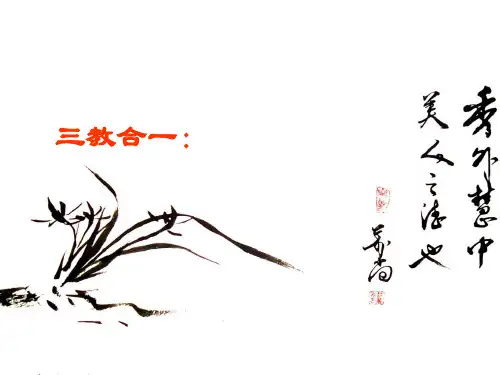 三教合一：
秀外慧中
美人之也